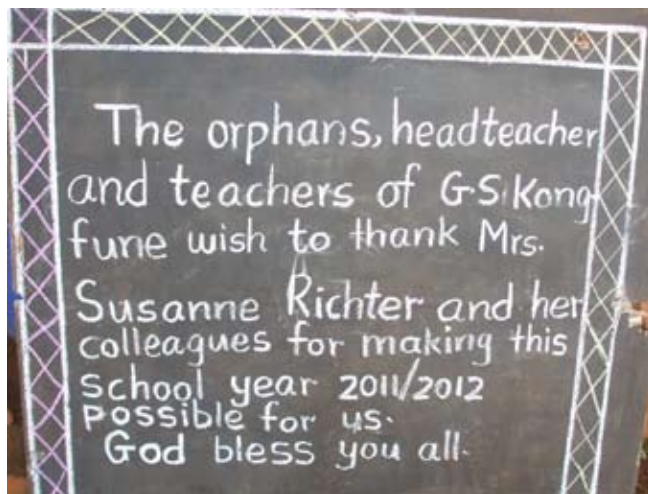 The orphans, headteacher
and teachers of G.S. Kong
fune wish to thank Mrs.
Susanne Richter and her
colleagues for making this
school year 2011/2012
possible for us.
God bless you all.